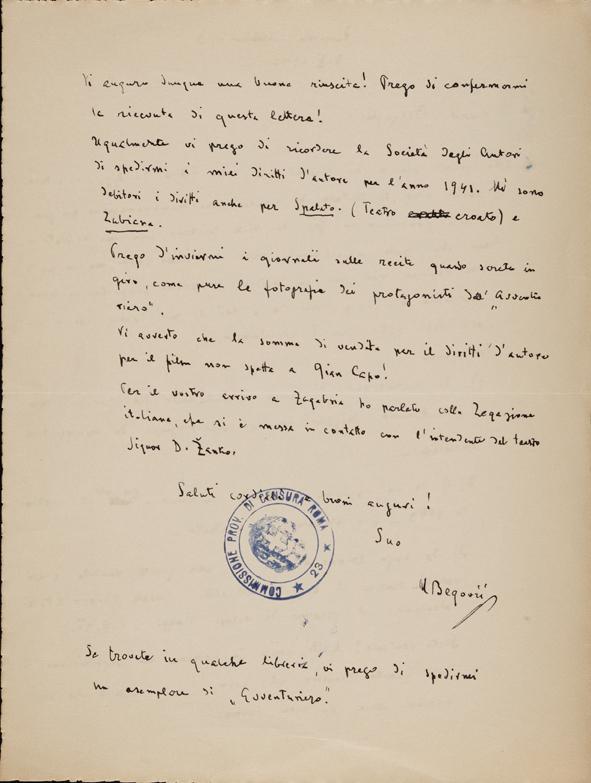 Vi auguro dunque una buona riuscita! Prego di confermarmi
la ricevuta di questa lettera!
Ugualmente vi prego di ricordare la Società degli Autori
di spedirmi i miei diritti d'autore per l'anno 1941. Mi sono
debitori i diritti anche per Spalato. (Teatro croato) e
Lubiana.
Prego d'inviarmi i giornali sulle recite quando sarete in
giro, come pure le fotografie dei protagonisti dell' „Avventu
riero".
Vi avverto che la somma di vendita per il diritti d'autore
per il film non spetta a Gian Capo!
Per il vostro arrivo a Zagabria ho parlato colla Legazione
italiana, che si è messa in contatto con l'intendente del teatro
Signor D. Žanko.
Saluti buoni auguri!
Suo
MBegović
COMMISSIONE PROV. DI CENSURA ROMA
★ 23 ★
Se trovate in qualche libreria, vi prego di spedirmi
un esemplare di „Avventuriero".